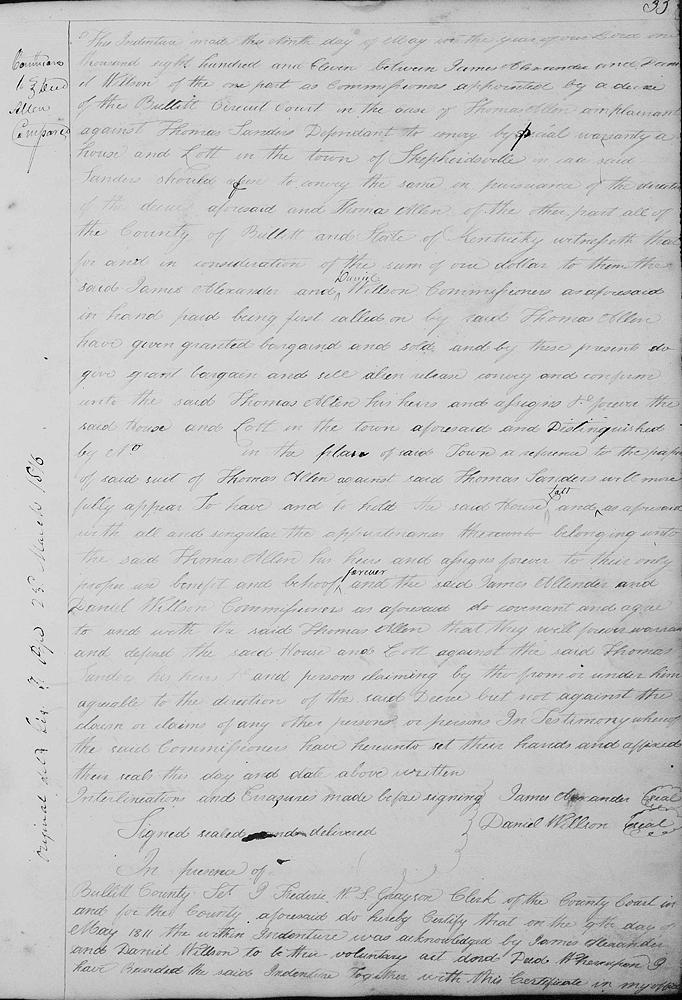 33
This Indenture made this Ninth day of May in the year of our Lord one
thousand eight hundred and Eleven between James Alexander and Dani
el Willson of the one part as Commissioners appointed by a decree
of the Bullitt Circuit Court in the case of Thomas Allen complainant
against Thomas Sanders Defendant to convey by special warranty a
house and Lott in the town of Shepherdsville in case said
Sanders should refuse to convey the same in pursuance of the direction
of the decree aforesaid and Thoma Allen of the other part all of
the County of Bullitt and State of Kentucky witnesseth that
for and in consideration of the sum of one dollar to them the
said James Alexander and Daniel Willson Commissioners as aforesaid
in hand paid being first called on by said Thomas Allen
have given granted bargaind and sold and by these presents do
give grant bargain and sell alien release convey and confirm
unto the said Thomas Allen his heirs and assigns &c forever the
said House and Lott in the town aforesaid and Distinguished
by No in the plan of said Town a reference to the papers
of said suit of Thomas Allen against said Thomas Sanders will more
fully appear To have and to hold the said House and Lott as aforesaid
with all and singular the appurtenances thereunto belonging unto
the said Thomas Allen his heirs and assigns forever to their only
proper use benefit and behoof forever and the said James Allender and
Daniel Willson Commissioners as aforesaid do covenant and agree
to and with the said Thomas Allen that they will forever warrant
and defend the said House and Lott against the said Thomas
Sanders his heirs &c and persons claiming by tho from or under him
agreeable to the direction of the said Decree but not against the
claim or claims of any other persons or persons In Testimony whereof
the said Commissioners have hereunto set their hands and affixed
their seals this day and date above written
Interlineations and Erasures made before signing James Alexander Seal
Signed sealed and delivered Daniel Willson Seal
In presence of
Bullitt County Set I Frederic W. S. Grayson Clerk of the County Court in
and for the County aforesaid do hereby Certify that on the 9th day of
May 1811 the within Indenture was acknowledged by James Alexander
and Daniel Willson to be their voluntary act and Deed Whereupon I
have Recorded the said Indenture Together with this Certificate in my office
to
Allen
Compared
Original 23d March 1816